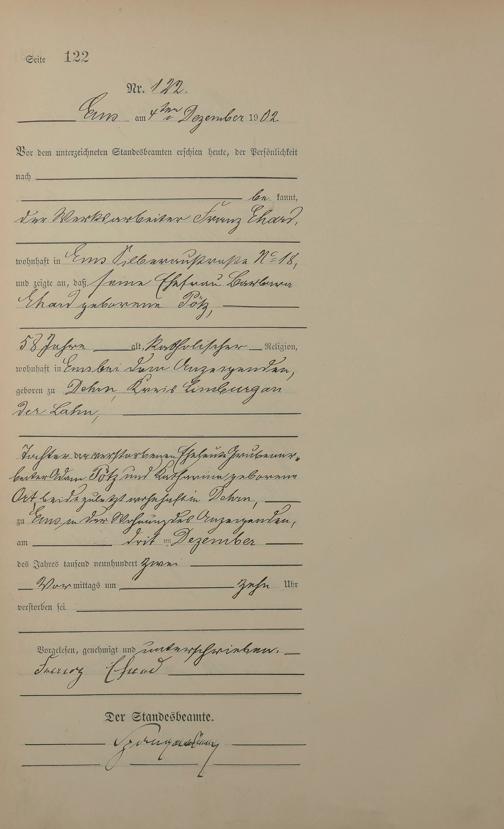 Seite 122
Nr. 122.
Ems am 4ten Dezember 1902
Vor dem unterzeichneten Standesbeamten erschien heute, der Persönlichkeit
nach
be kannt,
der Werksarbeiter Franz Ehard,
wohnhaft in Ems Silberaustraße No 18,
und zeigte an, daß seine Ehefrau Barbara
Ehard geborene Pötz,
58 Jahre alt, katholischer Religion,
wohnhaft in Ems bei dem Anzeigenden,
geboren zu Dehrn, Kreis Limburg an
der Lahn,
Tochter der verstorbenen Eheleute Grubenar-
beiter Adam Pötz und Katharina geborene
Ort beide zuletzt wohnhaft in Dehrn,
zu Ems, in der Wohnung des Anzeigenden,
am drit en Dezember
des Jahres tausend neunhundert zwei
Vor mittags um zehn Uhr
verstorben sei.
Vorgelesen, genehmigt und unterschrieben.
Franz Ehard
Der Standesbeamte.